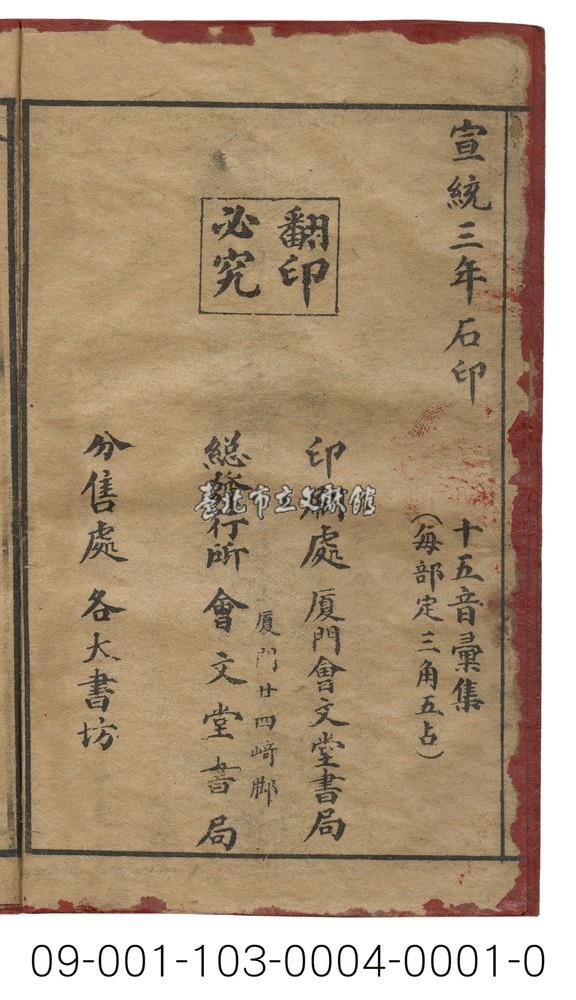 宣統三年石印
十五音彙集
（每部定三角五占）
翻印
必究
印刷處 厦門會文堂書局
厦門廿四崎脚
總發行所 會文堂書局
分售處 各大書坊
臺北市立文獻館
09-001-103-0004-0001-0